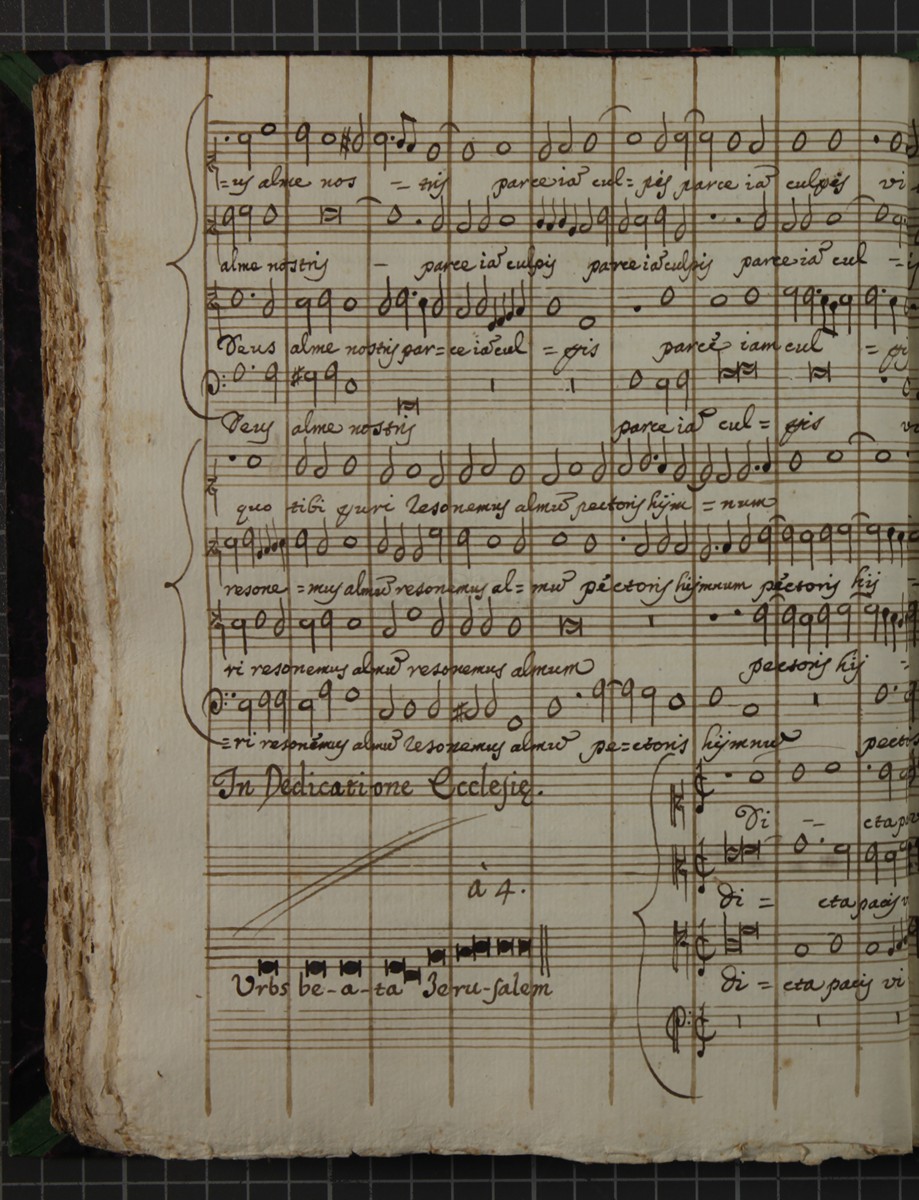 =us alme nos - tris parce iã cul= pis parce iã culpis vi
alme nostris - parce iã culpis parce iã culpis parce iã cul =is
Deus alme nostris par=ce iã cul = pis parce iam cul = pi
Deus alme nostris parce iã cul = pis vi
quo tibi puri resonemus almũ pectoris hijm = num
resone =mus almũ resonemus al= mũ pectoris hijmnum pectoris hij =
ri resonemus almũ resonemus almum pectoris hij =
=ri resonemus almũ resonemus almũ pe=ctoris hijmnũ pecto
In Dedicatione Ecclesię.
Di -- cta pa
à 4.
di = cta pacis v
Vrbs be-a-ta Jeru-salem
di = cta pacis vi